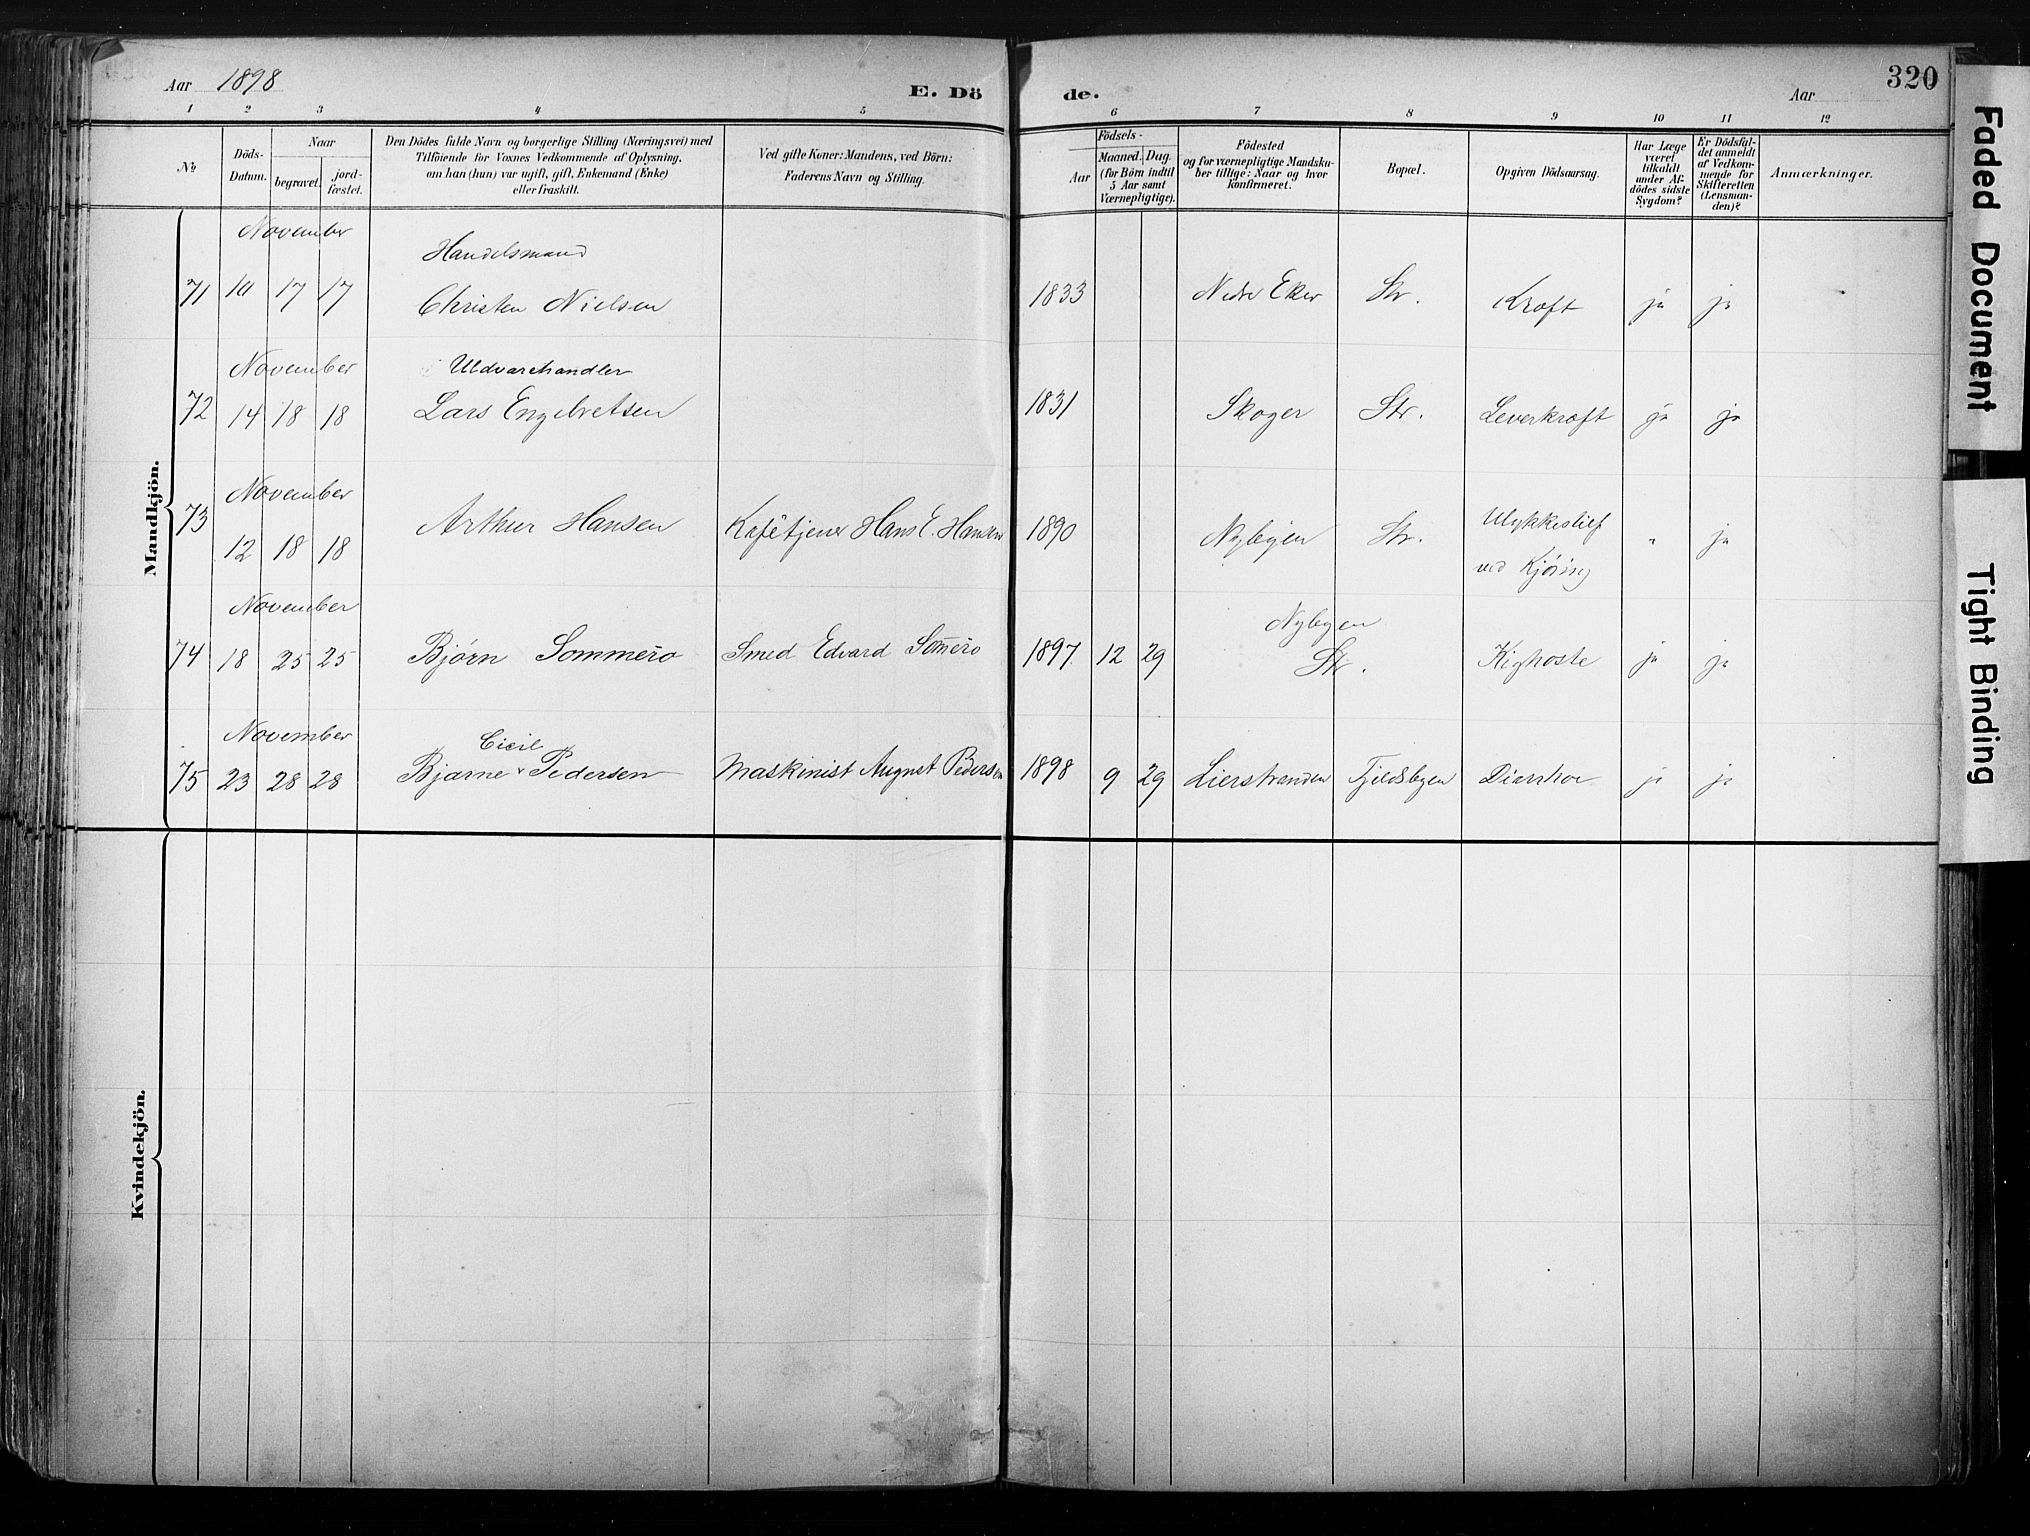 Aar 1898
E. Dö de.
Aar
320
1 2 3 4 5 6 7 8 9 10 11 12
№
Döds-Datum.
Naar
begravet.
jord-fæstet.
Den Dödes fulde Navn og borgerlige Stilling (Næringsvei) med
Tilföiende for Voxnes Vedkommende af Oplysning,
om han (hun) var ugift, gift, Enkemand (Enke)
eller fraskilt.
Ved gifte Koner: Mandens, ved Börn:
Faderens Navn og Stilling.
Födsels-
Aar
Maaned. Dag.
(for Börn indtil
5 Aar samt
Værnepligtige).
Födested
og for værnepligtige Mandska-
ber tillige: Naar og hvor
konfirmeret.
Bopæl.
Opgiven Dödsaarsag.
Har Læge
været
tilkaldt
under Af-
dödes sidste
Sygdom?
Er Dödsfal-
det anmeldt
af Vedkom-
mende for
Skifteretten
(Lensman-
den)?
Anmærkninger.
Mandkjön.
November
Handelsmand
71 10 17 17 Christen Nielsen 1833 Nedre Eker Str. Kræft ja ja
November
Uldvarehandler
72 14 18 18 Lars Engebretsen 1831 Skoger Str. Leverkræft ja ja
November
73 12 18 18 Arthur Hansen Kafétjener Hans E. Hansen 1890 Nybyen Str. Ulykkestilf
ved Kjøring " ja
November
Nybyen
74 18 25 25 Bjørn Sommerö Smed Edvard Som̅erö 1897 12 29 Str. Kighoste ja ja
November
Cicil
75 23 28 28 Bjarne v Pedersen Maskinist August Pedersen 1898 9 29 Lierstranden Fjeldsbyen Diarrhoe ja ja
Kvindekjön.
Faded Document
Tight Binding